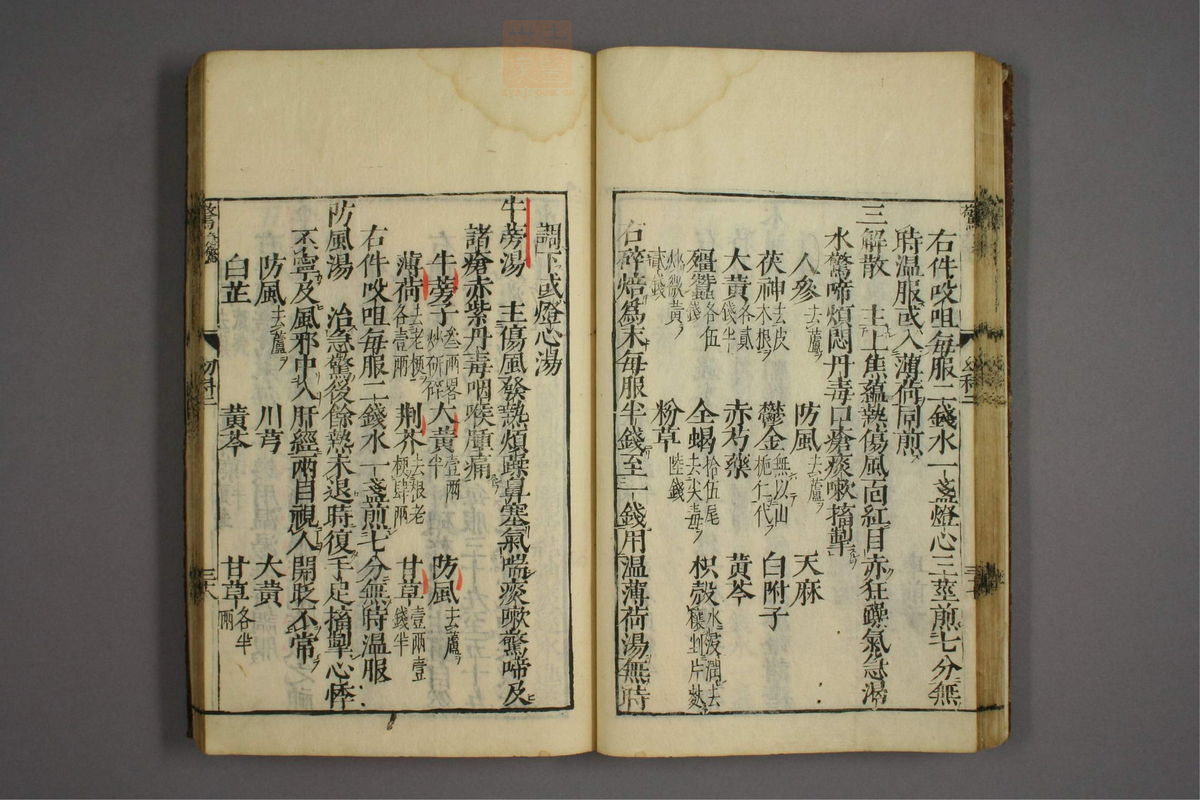 右件㕮咀每服二錢水一盞燈心三莖煎七分無
時温服或入薄荷同煎
三解散　主上焦蘊熱傷風面紅目赤狂躁氣急渴
水驚啼煩悶丹毒口瘡痰嗽搐掣
人參去蘆　防風去蘆　天麻
茯神去皮木根　鬱金無以山梔仁代　白附子
大黃各貳錢半　赤芍藥　黃芩
殭蠶各伍錢　全蝎拾伍尾去尖毒　枳殼水浸潤去穰剉片麩
炒微黃貳錢　粉草陸錢
右碎焙爲末每服半錢至一錢用温薄荷湯無時
調下或燈心湯
牛蒡湯　主傷風發熱煩躁鼻塞氣喘痰嗽驚啼及
諸瘡赤紫丹毒咽喉腫痛
牛蒡子叁兩畧炒研碎　大黃壹兩半　防風去蘆
薄荷去老梗各壹兩　荆芥去根老梗肆兩　甘草壹兩壹錢半
右件㕮咀每服二錢水一盞煎七分無時温服
防風湯　治急驚後餘熱未退時復手足搐掣心悸
不寧及風邪中入肝經兩目視人開眨不常
防風去蘆　川芎　大黃
白芷　黃芩　甘草各半兩
幼科二
三十八